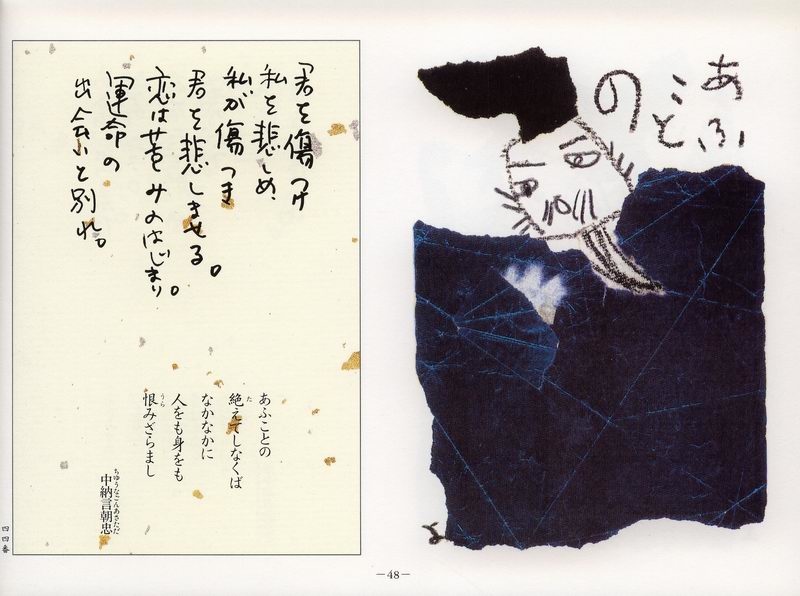 あふ
こと
の
君を傷つけ
私を悲しめ、
私が傷つき
君を悲しませる。
恋は苦しみのはじまり。
運命の
出会いと別れ。
あふことの
絶えてしなくば
なかなかに
人をも身をも
恨みざらまし
中納言朝忠
ちゆうなごんあさただ
四四番
—48—